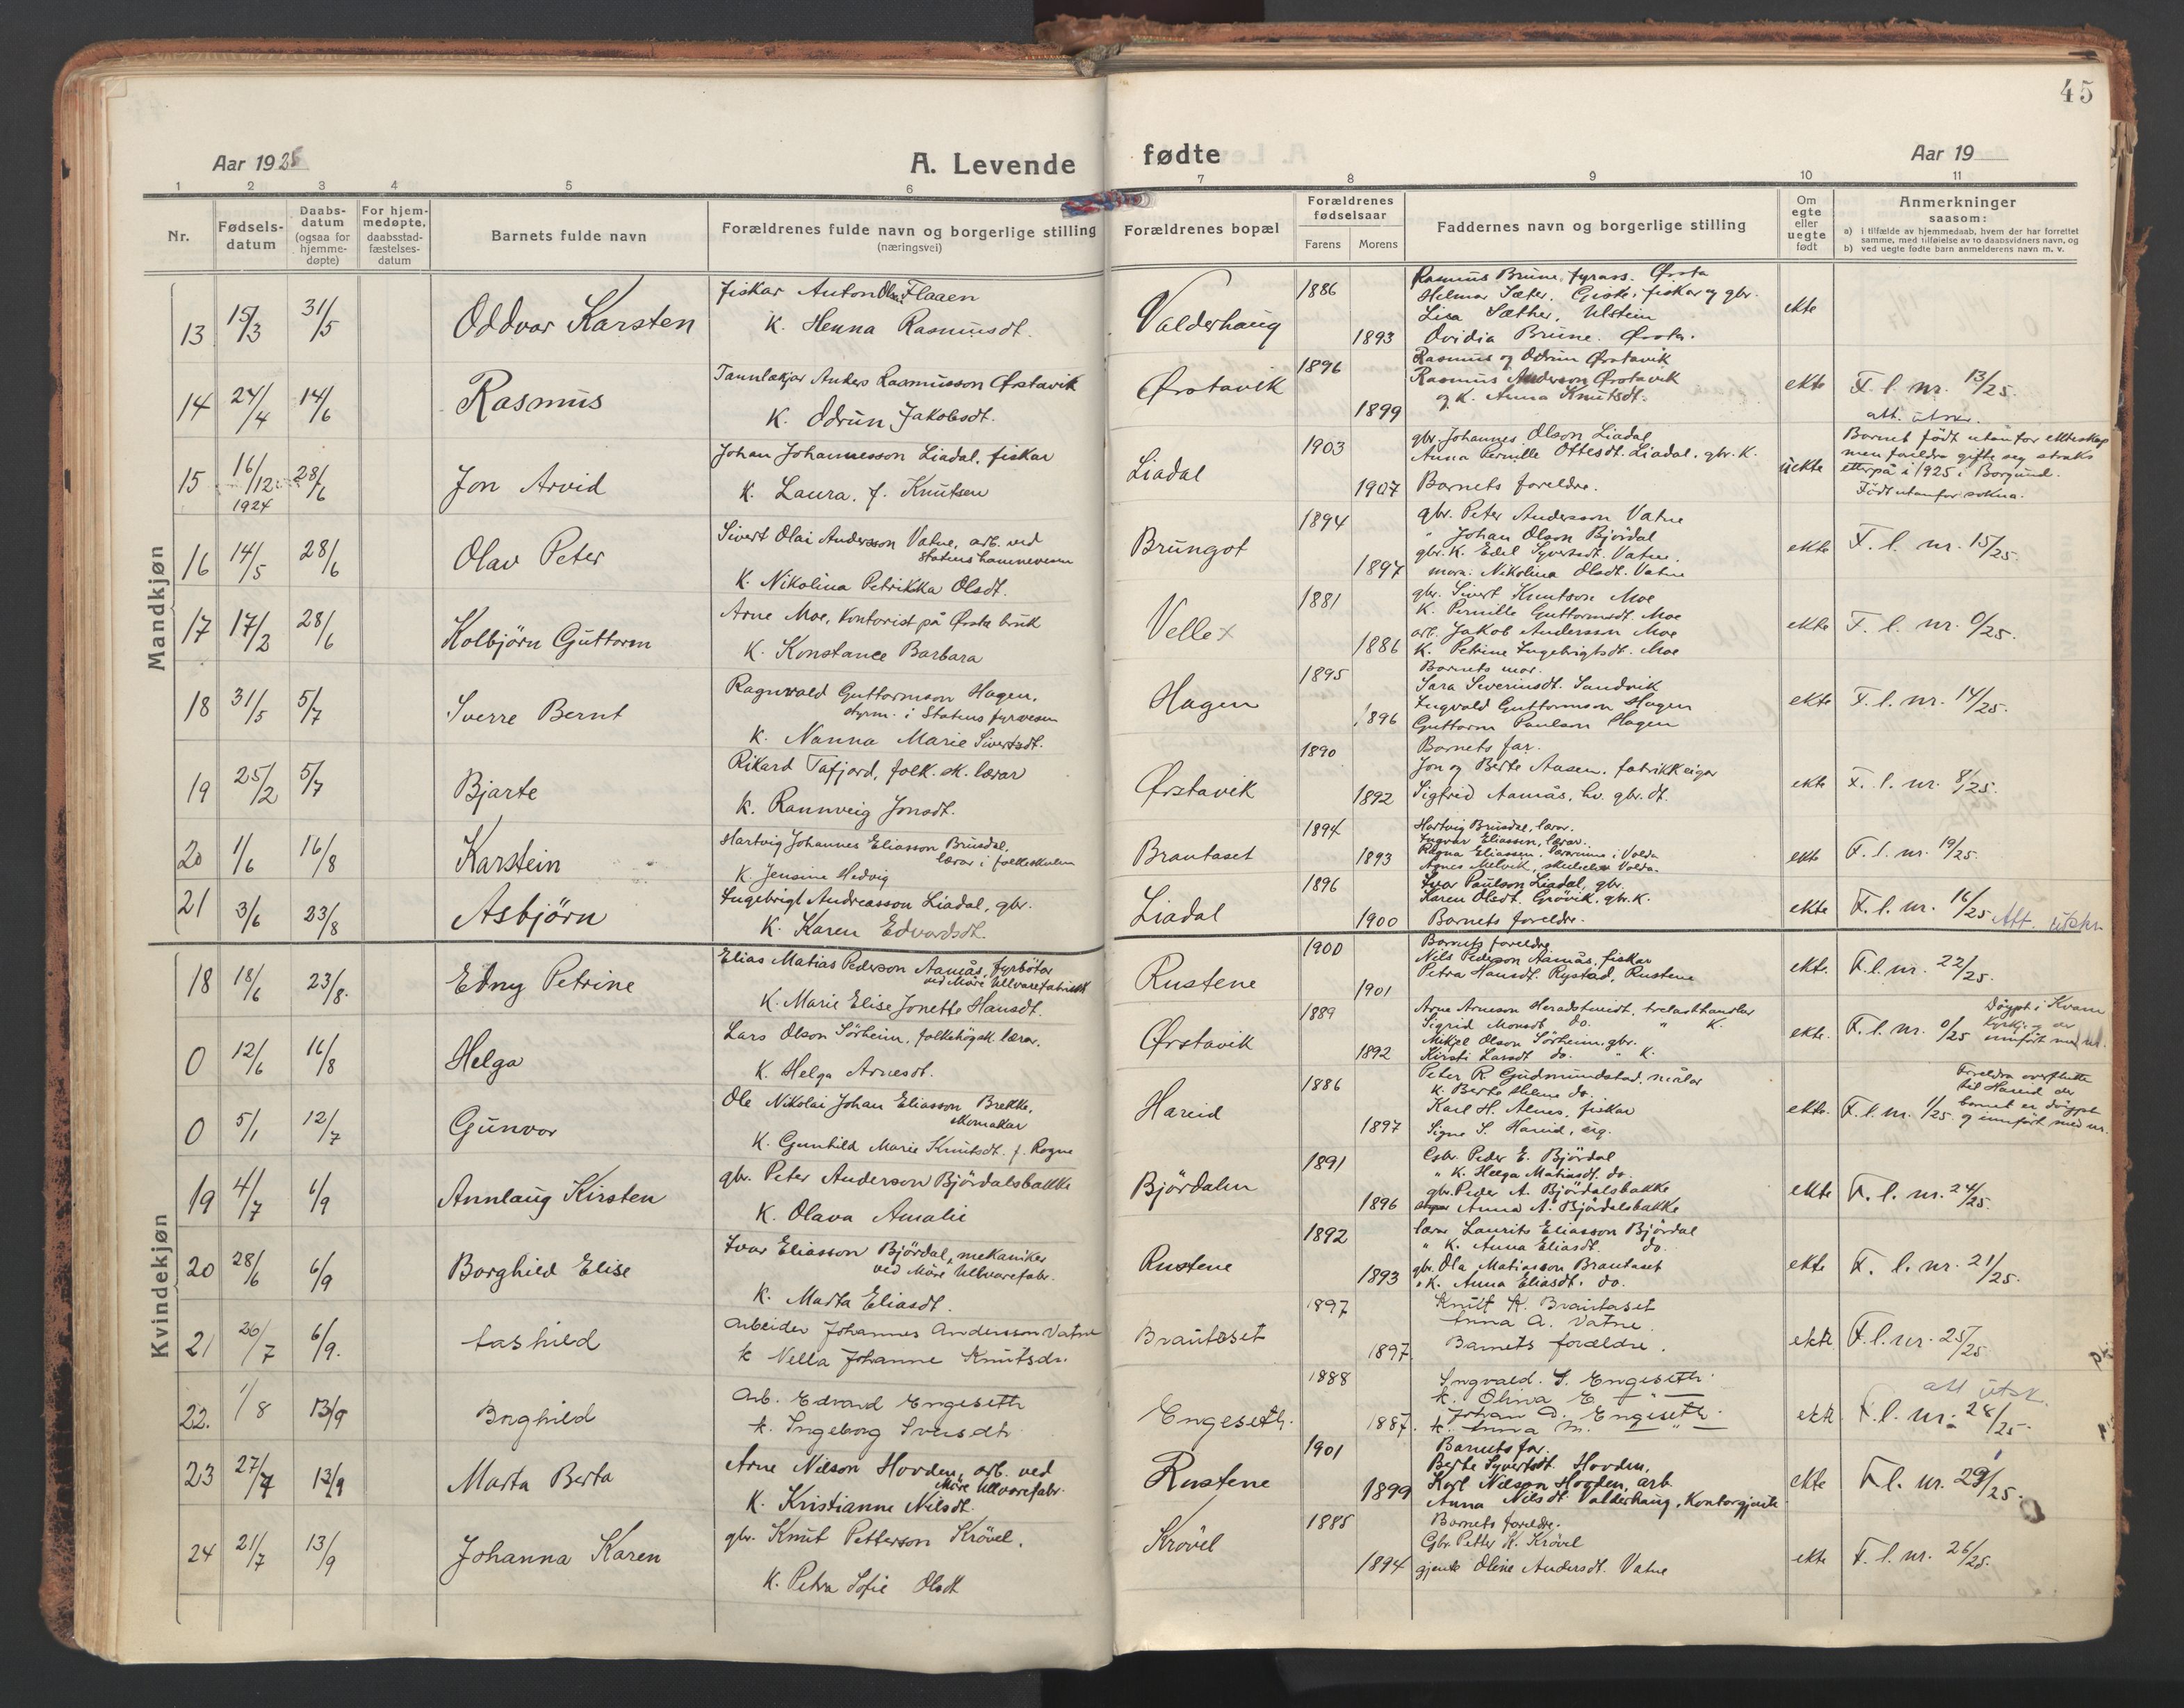 45
Aar 1925
A. Levende
fødte
Aar 19
1 2 3 4 5 6 7 8 9 10 11
Nr.
Fødsels-
datum
Daabs-
datum
(ogsaa for
hjemme-
døpte)
For hjem-
medøpte,
daabsstad-
fæstelses-
datum
Barnets fulde navn
Forældrenes fulde navn og borgerlige stilling
(næringsvei)
Forældrenes bopæl
Forældrenes
fødselsaar
Farens Morens
Faddernes navn og borgerlige stilling
Om
egte
eller
uegte
født
Anmerkninger
saasom:
a) i tilfælde av hjemmedaab, hvem der har forrettet
samme, med tilføielse av to daabsvidners navn, og
b) ved uegte fødte barn anmelderens navn m. v.
Mandkjøn
13 15/3 31/5 Oddvar Karsten
fiskar Anton Olsen Flaaen
K. Henna Rasmusdt.
Valderhaug 1886 1893
Rasmus Brune, fyrass. Ørsta
Helmar Sæter. Giske, fiskar og gbr.
Lisa Sæther, Ulstein
Ovidia Brune. Ørsta.
ekte
14 24/4 14/6 Rasmus
Tannlækjar Anders Rasmusson Ørstavik
K. Odrun Jakobsdt.
Ørstavik 1896 1899
Rasmus og Odrun Ørstavik
Rasmus Anderson Ørstavik
og K. Anna Knutsdt.
ekte F. l. nr. 13/25.
att. utskr.
15 16/12 1924 28/6 Jon Arvid
Johan Johannesson Liadal, fiskar
K. Laura, f. Knutsen
Liadal 1903 1907
gbr. Johannes Olson Liadal
Anna Pernille Ottesdt. Liadal, gbr. K.
Barnets foreldre.
uekte
Barnet født utanfor ekteskap
men foreldra gifte seg straks
etterpå i 1925 i Borgund.
Født utanfor sokna.
16 14/5 28/6 Olav Peter
Sivert Olai Andersson Vatne, arb. ved
Statens hamnevesen
K. Nikolina Petrikka Olsdt.
Brungot 1894 1897
gbr. Peter Andersson Vatne
" Johan Olson Bjørdal
gbr. K. Edel Syversdt. Vatne
mora: Nikolina Olsdt. Vatne
ekte F. l. nr. 15/25.
17 17/2 28/6 Kolbjörn Guttorm
Arne Moe, kontorist på Ørsta bruk
K. Konstance Barbara
Velle x 1881 1886
gbr. Sivert Knutson Moe
K. Pernille Guttormsdt. Moe
arb. Jakob Andersson Moe
K. Petrine Ingebrigtsdt. Moe
ekte F. l. nr. 0/25.
18 31/5 5/7 Sverre Bernt
Ragnvald Guttormson Hagen,
styrm. i Statens fyrvesen
K. Nanna Marie Sivertsdt.
Hagen 1895 1896
Barnets mor.
Sara Severinsdt. Sandvik
Ingvald Guttormson Hagen
Guttorm Paulson Hagen
ekte F. l. nr. 14/25.
19 25/2 5/7 Bjarte
Rikard Tafjord, folk. sk. lærar
K. Rannveig Jonsdt.
Ørstavik 1890 1892
Barnets far.
Jon og Berte Aasen, fabrikkeigar
Sigfrid Aamås, hv. gbr. dt.
ekte F. l. nr. 8/25.
20 1/6 16/8 Karstein
Hartvig Johannes Eliasson Brusdal,
lærar i folkeskulen
K. Jensine Hedvig
Brautaset 1894 1893
Hartvig Brusdal, lærar.
Ingvar Eliassen, lærar.
Ragna Eliassen, lærarinne i Volda
Agnes Melvik, Volda.
ekte F. l. nr. 19/25.
21 3/6 23/8 Asbjörn
Ingebrigt Andreasson Liadal, gbr.
K. Karen Edvardsdt.
Liadal 1896 1900
Ivar Paulson Liadal, gbr.
Karen Olsdt. Grövik, gbr. K.
Barnets foreldre.
ekte F. l. nr. 16/25 Att. utskr.
Kvindekjøn
18 18/6 23/8. Edny Petrine
Elias Matias Pederson Aamås, fyrbötar
ved Möre Ullvarefabrikk
K. Marie Elise Jonette Hansdt.
Rustene 1900 1901
Barnets foreldre
Nils Pederson Aamås, fiskar
Petra Hansdt. Rystad, Rustene
ekte. F. l. nr. 22/25.
0 12/6 16/8 Helga
Lars Olson Sörheim, folkehögsk. lærar.
K. Helga Arnesdt.
Ørstavik 1889 1892
Arne Arneson Heradstveidt, trelasthandlar
Sigrid Monsdt do. " K.
Mikjel Olson Sörheim, gbr.
Kirsti Larsdt do. " K.
ekte. F. l. nr. 0/25
Döypt i Kvam
kyrkje og der
innfört med nr.
0 5/1 12/7 Gunvor
Ole Nikolai Johan Eliasson Brekke,
skomakar
K. Gunhild Marie Knutsdt. f. Rogne
Hareid 1886 1897
Peter R. Gudmundstad, målar
K. Berte Helene do.
Karl H. Alnes, fiskar
Signe S. Hareid, sig.
ekte. F. l. nr. 1/25.
Foreldra overflutte
til Hareid der
barnet er döypt
og innfört med nr.
19 4/7 6/9 Annlaug Kirsten
gbr. Peter Anderson Björdalsbakke
K. Olava Amalie
Björdalen 1891 1896
Gbr. Peder E. Björdal
" K. Helga Matiasdt. do.
gbr. Peder A. Björdalsbakke
Anna A. Björdalsbakke
ekte F. l. nr. 24/25.
20 28/6 6/9 Borghild Elise
Ivar Eliasson Björdal, mekaniker
ved Möre Ullvarefabr.
K. Marta Eliasdt.
Rustene 1892 1893
lærar Laurits Eliasson Björdal
" K. Anna Eliasdt. do.
gbr. Ola Matiasson Brautaset
" K. Anna Eliasdt. do.
ekte F. l. nr. 21/25.
21 26/7 6/9. Aashild
Arbeider Johannes Andersson Vatne
k Nella Johanne Knutsdr.
Brautaset 1897 1897
Knut K. Brautaset
Anna A. Vatne.
Barnets forældre.
ekte F. l. nr. 25/25
22. 1/8 13/9 Borghild
Arb. Edvard Engeseth
k. Ingeborg Svensdtr.
Engeseth. 1888 1887.
Ingvald. S. Engeseth.
k. Olina E. — " —
Johan O. Engeseth.
k. Anna M. — " —
ekte. F. l. nr. 28/25.
att utsk.
23 27/7 13/9 Marta Berta
Arne Nilson Hovden, arb. ved
Möre Ullvarefabr.
K. Kristianne Nilsdt.
Rustene 1901 1899
Barnets far.
Berte Syvertsdt Hovden,
Karl Nilson Hovden, arb.
Anna Nilsdt Valderhaug, Kontorgjente
ekte F. l. nr. 29/25.
24 21/7 13/9 Johanna Karen
gbr. Knut Petterson Krövel.
K. Petra Sofie Olsdt
Krövel 1885 1894
Barnets foreldre.
Gbr. Petter K. Krövel
gjente Oline Andersdt. Vatne
ekte F. l. nr. 26/25.